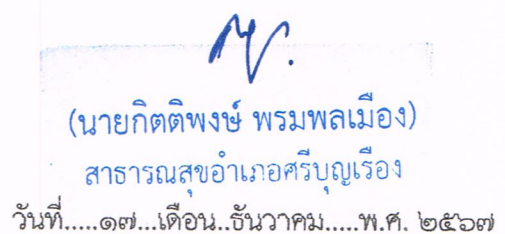 (นายกิตติพงษ์ พรมพลเมือง)
สาธารณสุขอำเภอศรีบุญเรือง
วันที่.....๑๗...เดือน..ธันวาคม.....พ.ศ. ๒๕๖๗